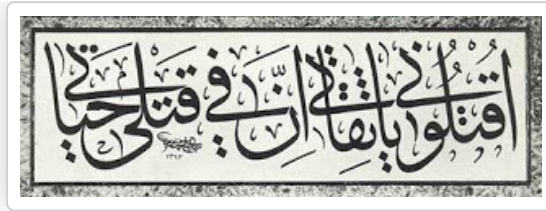 اُقْتُلُونِي يَا ثِقَاتِي اِنَّ فِي قَتْلِي حَيَاتِي